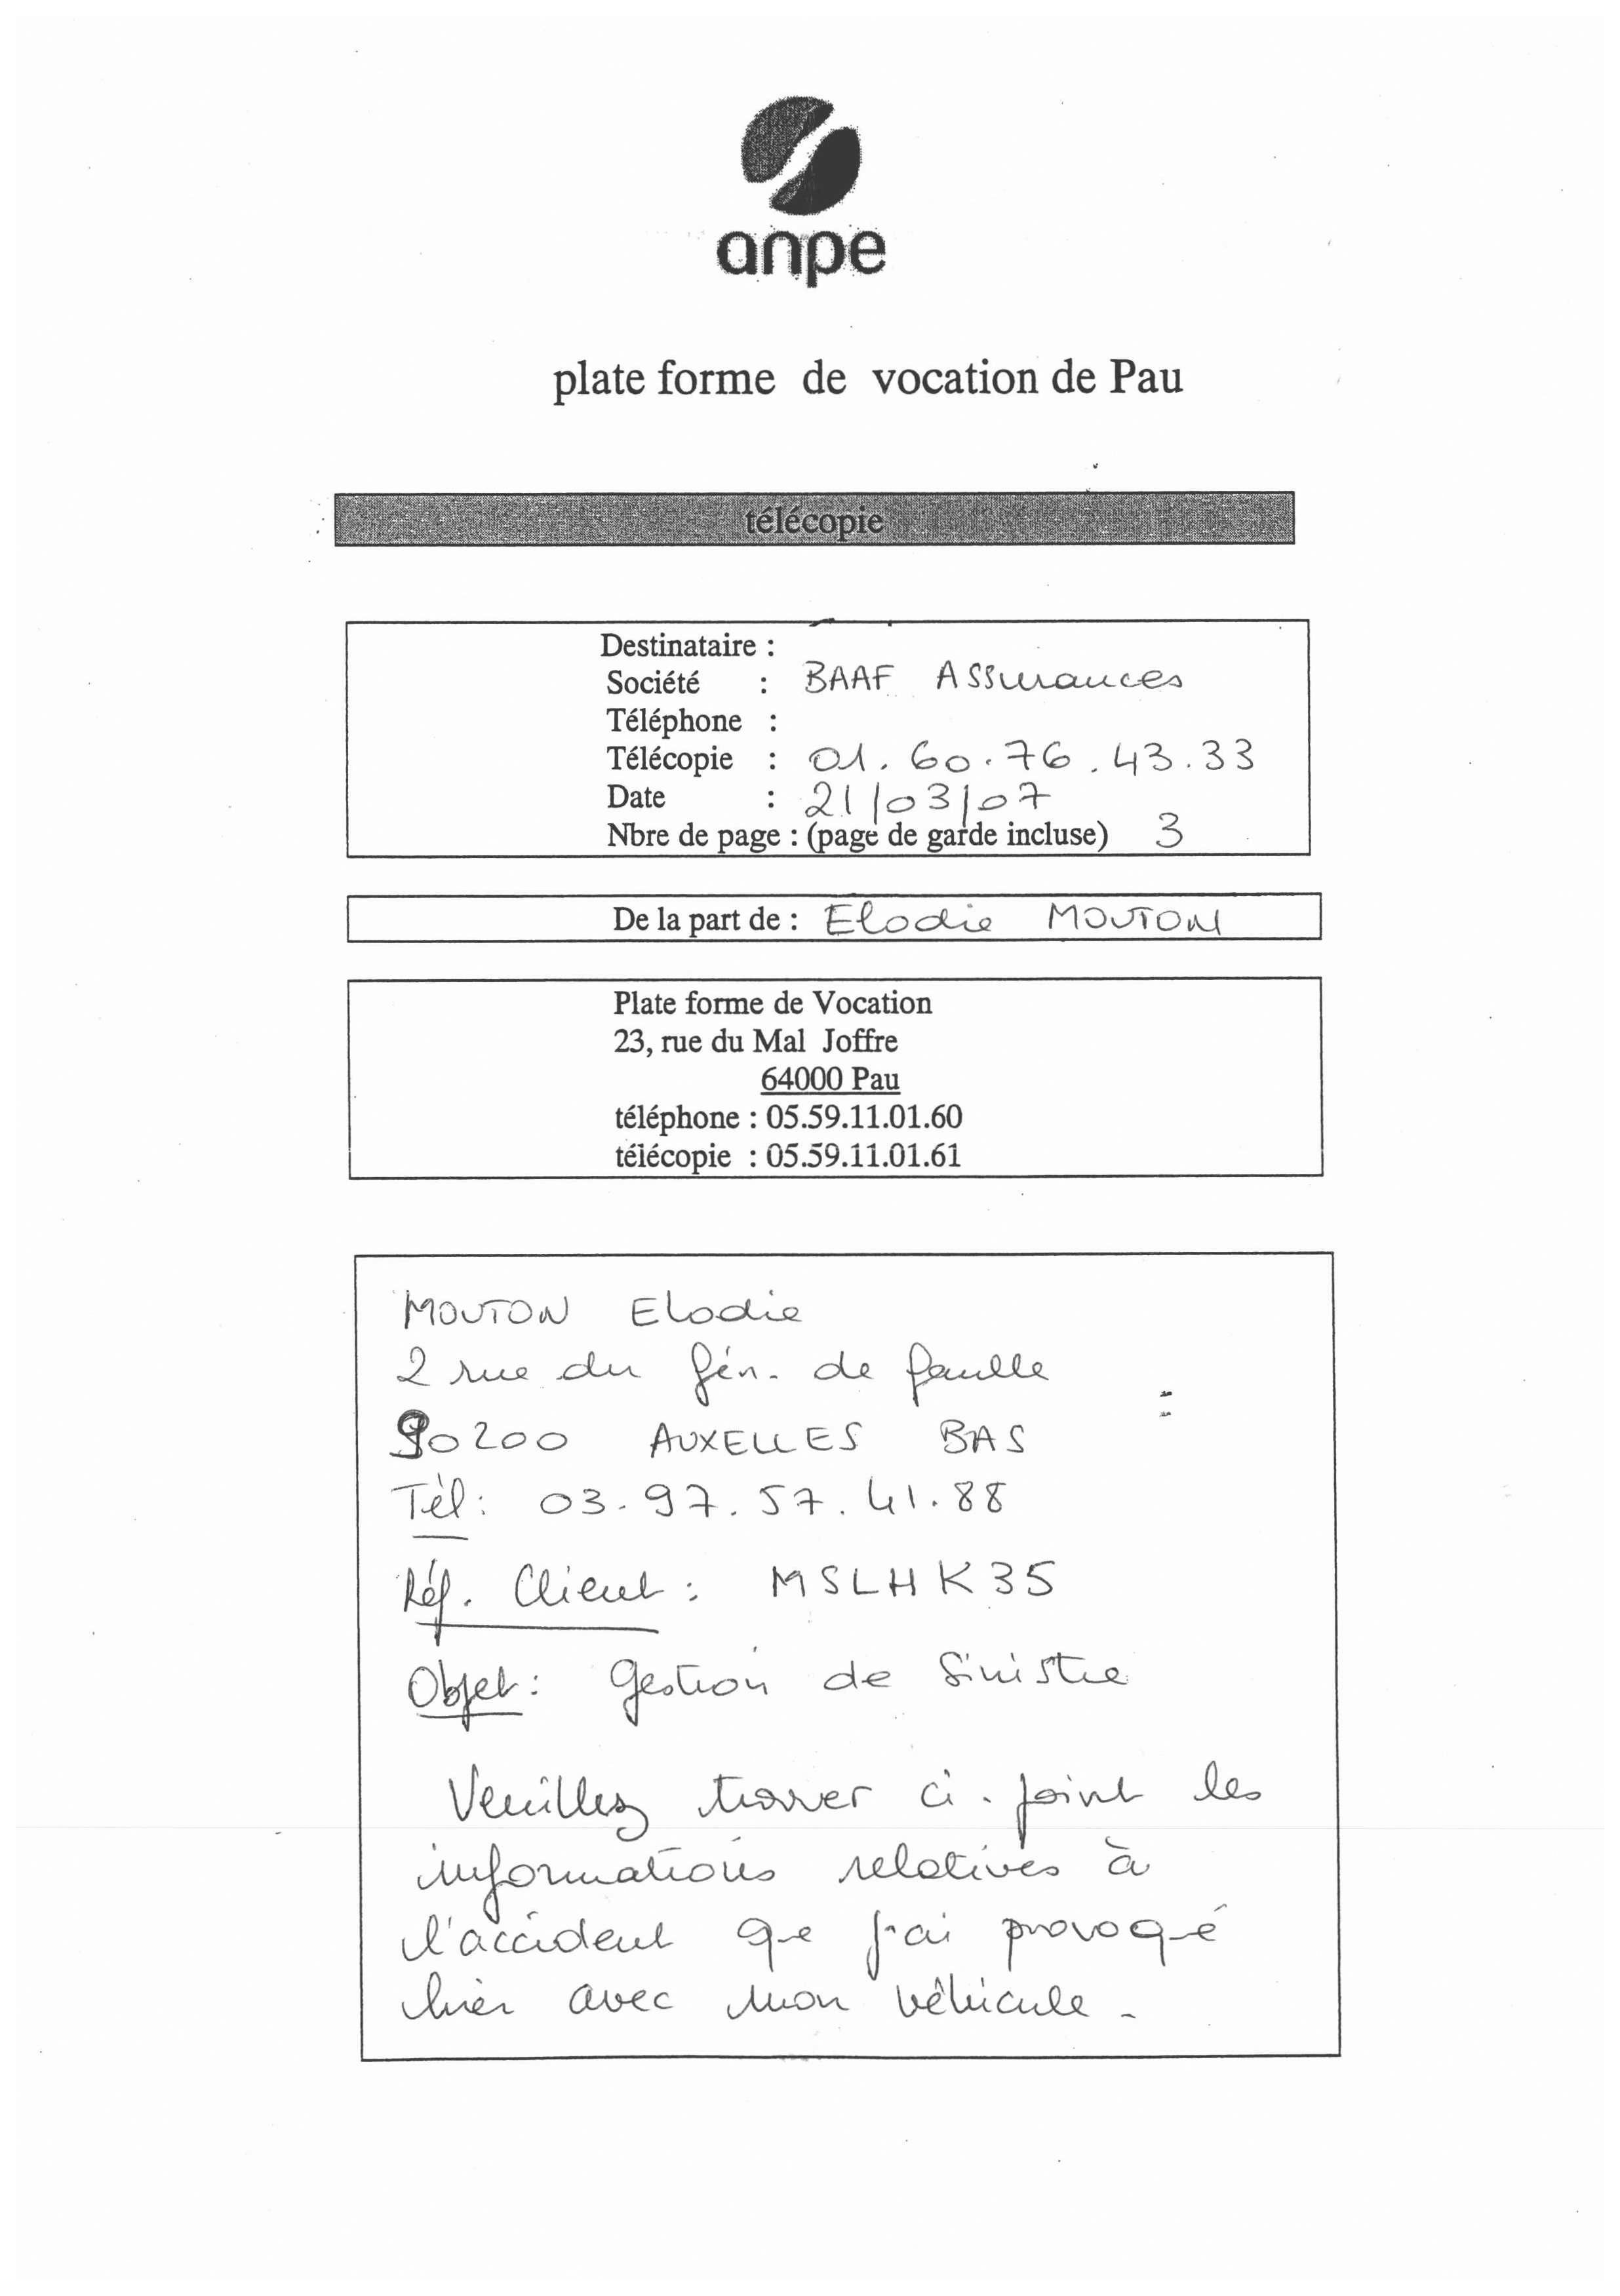 anpe
plate forme de vocation de Pau
télécopie
Destinataire :
Société : BAAF Assurances
Téléphone :
Télécopie : 01.60.76.43.33
Date : 21/03/07
Nbre de page : (page de garde incluse) 3
De la part de : Elodie MOUTON
Plate forme de Vocation
23, rue du Mal Joffre
64000 Pau
téléphone : 05.59.11.01.60
télécopie : 05.59.11.01.61
MOUTON Elodie
2 rue du Gén. de Gaulle
90200 AUXELLES BAS
Tél : 03.97.57.41.88
Réf. Client : MSLHK35
Objet : Gestion de Sinistre
Veuillez trouver ci-joint les
informations relatives à
l'accident que j'ai provoqué
hier avec mon véhicule.